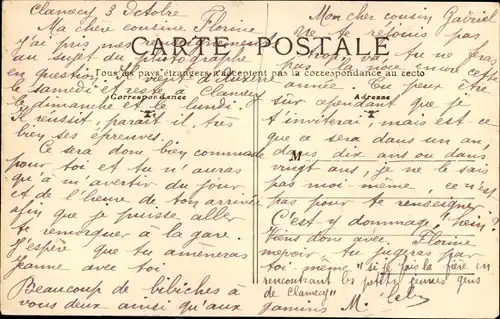 Clamecy 3 Octobre
Ma chère cousine Florine
J'ai pris mes renseignements
au sujet du photographe
en question. Il vient
le samedi et reste à Clamecy
le dimanche et le lundi.
Il réussit, paraît il, très
bien ses épreuves.
Ce sera donc bien commode
pour toi et tu n'auras
qu'à m'avertir du jour
et de l'heure de ton arrivée
afin que je puisse aller
te remorquer à la gare.
J'espère que tu amèneras
Jeanne avec toi.
Beaucoup de bibiches à
vous deux ainsi qu'aux
CARTE POSTALE
Tous les pays étrangers n'acceptent pas la correspondance au recto
Correspondance
Adresse
M
Mon cher cousin Gabriel
Ne te réjouis pas
trop car tu ne feras
pas la noce encore cette
année. Tu peux être
sûr cependant que je
t'inviterai mais est-ce
que ce sera dans un an,
dans dix ans ou dans
vingt ans, je ne le sais
pas moi-même, ce n'est
pas pour te renseigner
C'est y dommage, "hein"?
Viens donc avec Florine
me voir tu jugeras par
toi même "si je fais la fière en
rencontrant les petits jeunes gens
de Clamecy"
gamins M.